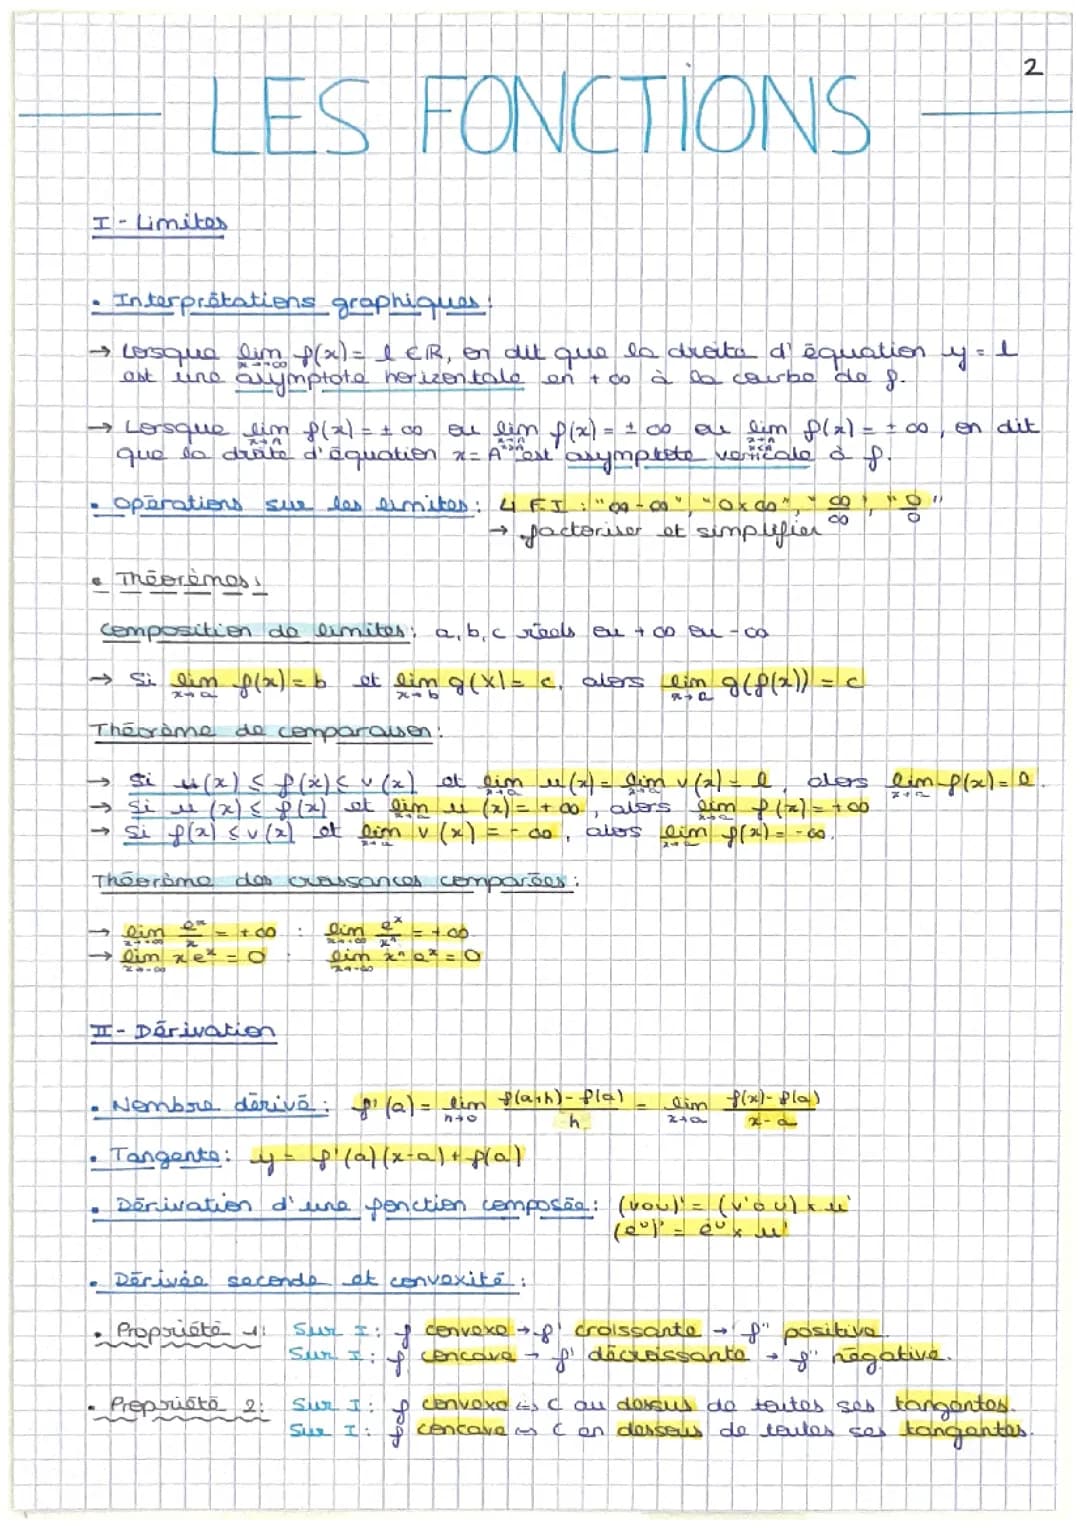 2
LES FONCTIONS
I - Limites
• Interprétations graphiques :
→ Lorsque lim f(x) = l ∈ ℝ, on dit que la droite d'équation y = l
x→+∞
est une asymptote horizontale en +∞ à la courbe de f.
→ Lorsque lim f(x) = ±∞ ou lim f(x) = ±∞ ou lim f(x) = ±∞, on dit
que la droite d'équation x = A est asymptote verticale à f.
• Opérations sur les limites : 4 F.I : "∞-∞", "0×∞", "∞/∞", "0/0"
→ factoriser et simplifier
• Théorèmes :
Composition de limites : a, b, c réels ou +∞ ou -∞
→ Si lim f(x) = b et lim g(X) = c, alors lim g(f(x)) = c
x→a X→b x→a
Théorème de comparaison :
→ Si u(x) ≤ f(x) ≤ v(x) et lim u(x) = lim v(x) = l, alors lim f(x) = l.
→ Si u(x) ≤ f(x) et lim u(x) = +∞, alors lim f(x) = +∞
→ Si f(x) ≤ v(x) et lim v(x) = -∞, alors lim f(x) = -∞.
Théorème des croissances comparées :
→ lim e^x/x = +∞ : lim e^x/x^n = +∞
x→+∞ x→+∞
→ lim xe^x = 0 : lim x^n e^x = 0
x→-∞ x→-∞
II - Dérivation
• Nombre dérivé : f'(a) = lim (f(a+h)-f(a))/h = lim (f(x)-f(a))/(x-a)
h→0 x→a
• Tangente : y = f'(a)(x-a)+f(a)
• Dérivation d'une fonction composée : (vou)' = (v'ou) × u'
(e^u)' = e^u × u'
• Dérivée seconde et convexité :
• Propriété 1 : Sur I : f convexe → f' croissante → f'' positive.
Sur I : f concave → f' décroissante → f'' négative.
• Propriété 2 : Sur I : f convexe ⇔ C au dessus de toutes ses tangentes.
Sur I : f concave ⇔ C en dessous de toutes ses tangentes.